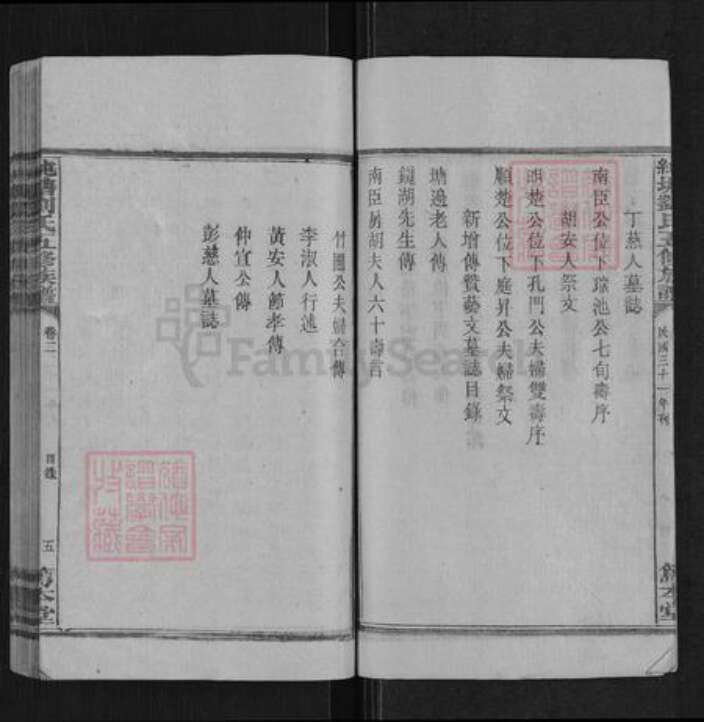 劉氏五修族譜
民國三十一年刊
敦本堂
丁慈人墓誌
南臣公位下瑞池公七旬壽序
胡安人祭文
明楚公位下孔門公夫婦雙壽序
順楚公位下庭昇公夫婦祭文
新增傳贊藝文墓誌目錄
塘邊老人傳
鏡湖先生傳
南臣房胡夫人六十壽言
竹圃公夫婦合傳
李淑人行述
黃安人節孝傳
仲宣公傳
彭慈人墓誌
劉氏五修族譜
卷二
目錄
五
敦本堂
FamilySearch